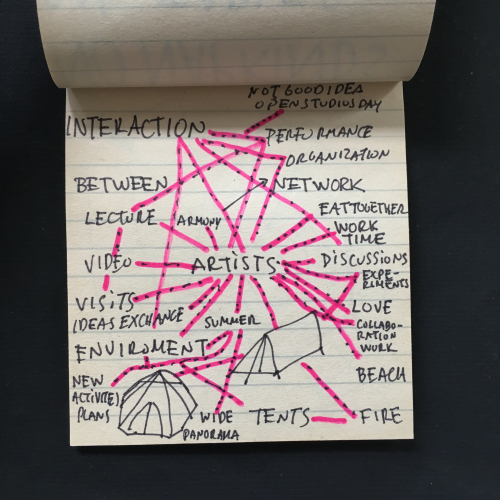 NOT GOOD IDEA
OPEN STUDIOS DAY
INTERACTION
PERFORMANCE
ORGANIZATION
BETWEEN
NETWORK
LECTURE
ARMONY
EAT TOGETHER
WORK
TIME
VIDEO
ARTISTS
DISCUSSIONS
EXPE-
RIMENTS
VISITS
LOVE
IDEAS EXCHANGE
SUMMER
COLLABO-
RATION
WORK
ENVIROMENT
BEACH
NEW
ACTIVITIES
PLANS
WIDE
PANORAMA
TENTS
FIRE